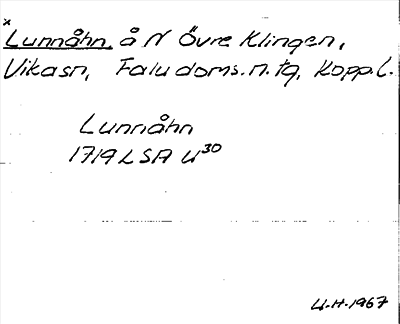 x
Lunnåhn, å N Övre Klingen,
Vikasn, Falu doms. n. tg, Kopp.l.
Lunnåhn
1719 LSA U30
U-H-1967